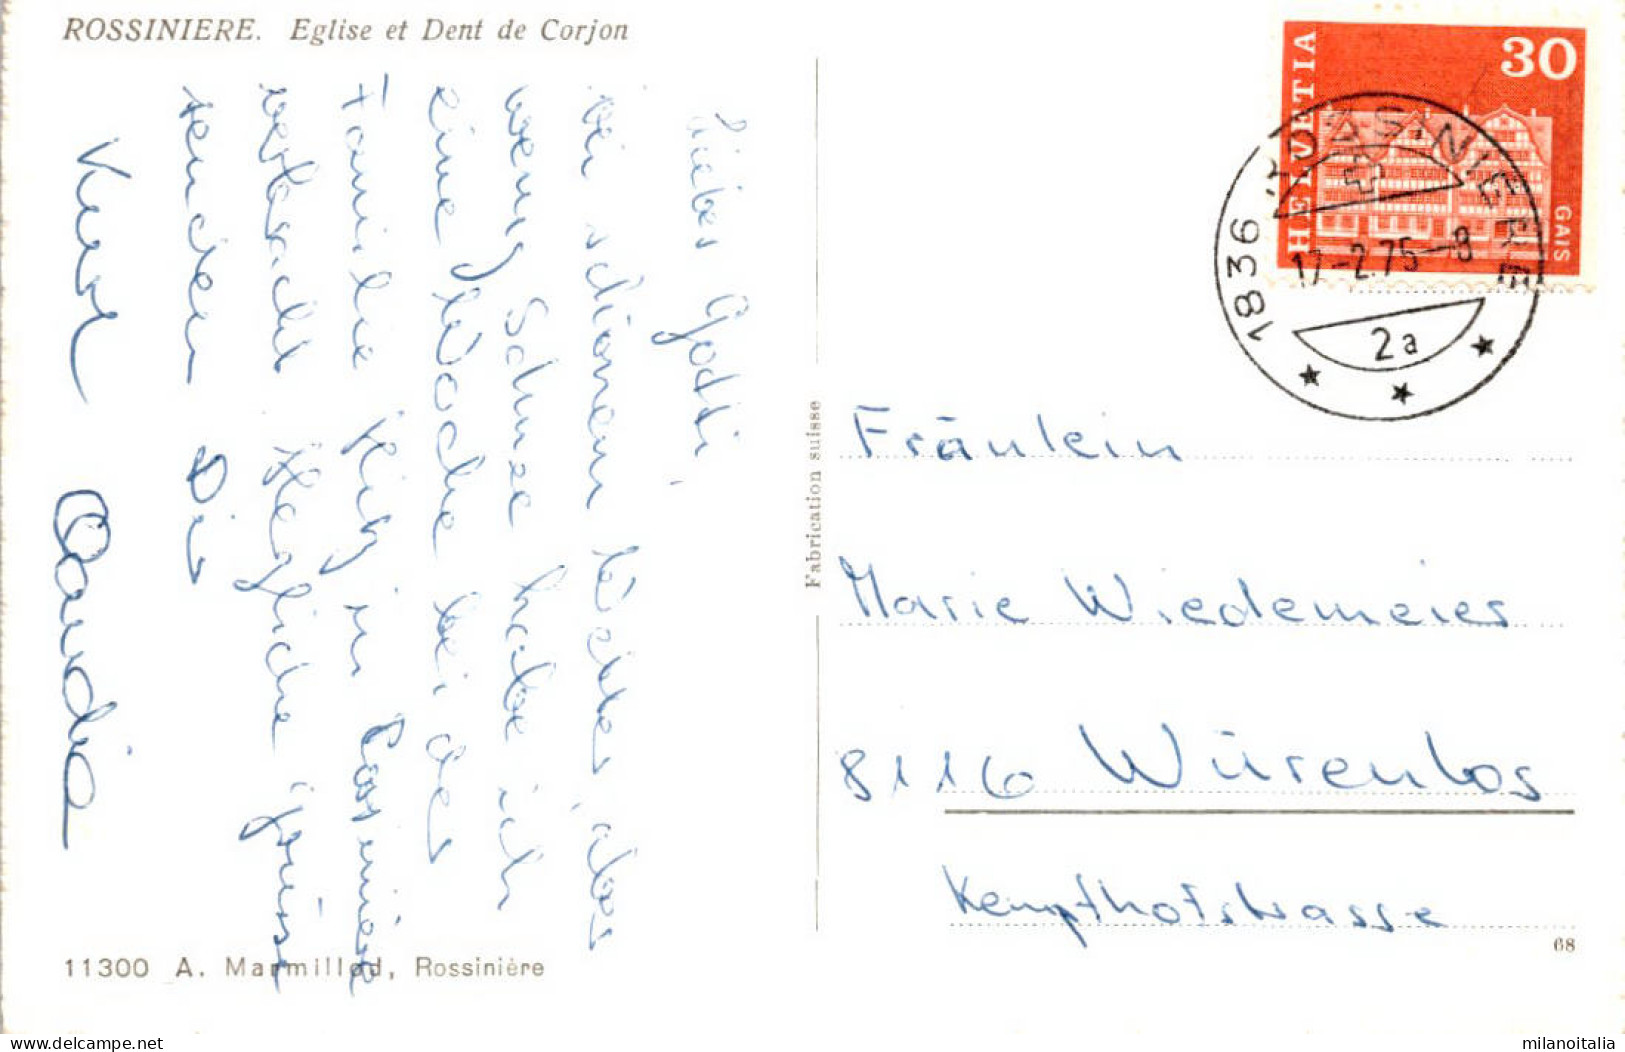 ROSSINIERE. Eglise et Dent de Corjon
Liebes Gotti,
bei schönem Wetter, aber
wenig Schnee habe ich
eine Woche bei der
Familie in Rossinière
verbracht. Herzliche Grüsse
senden Dir
Claudia
HELVETIA
30
GAIS
1836 ROSSINIERE
17.-2.75-8
2a
Fabrication suisse
Fräulein
Marie Wiedemeier
8116 Würenlos
Kempfhofstrasse
68
11300 A. Marmillod, Rossinière
delcampe.net
milanoitalia